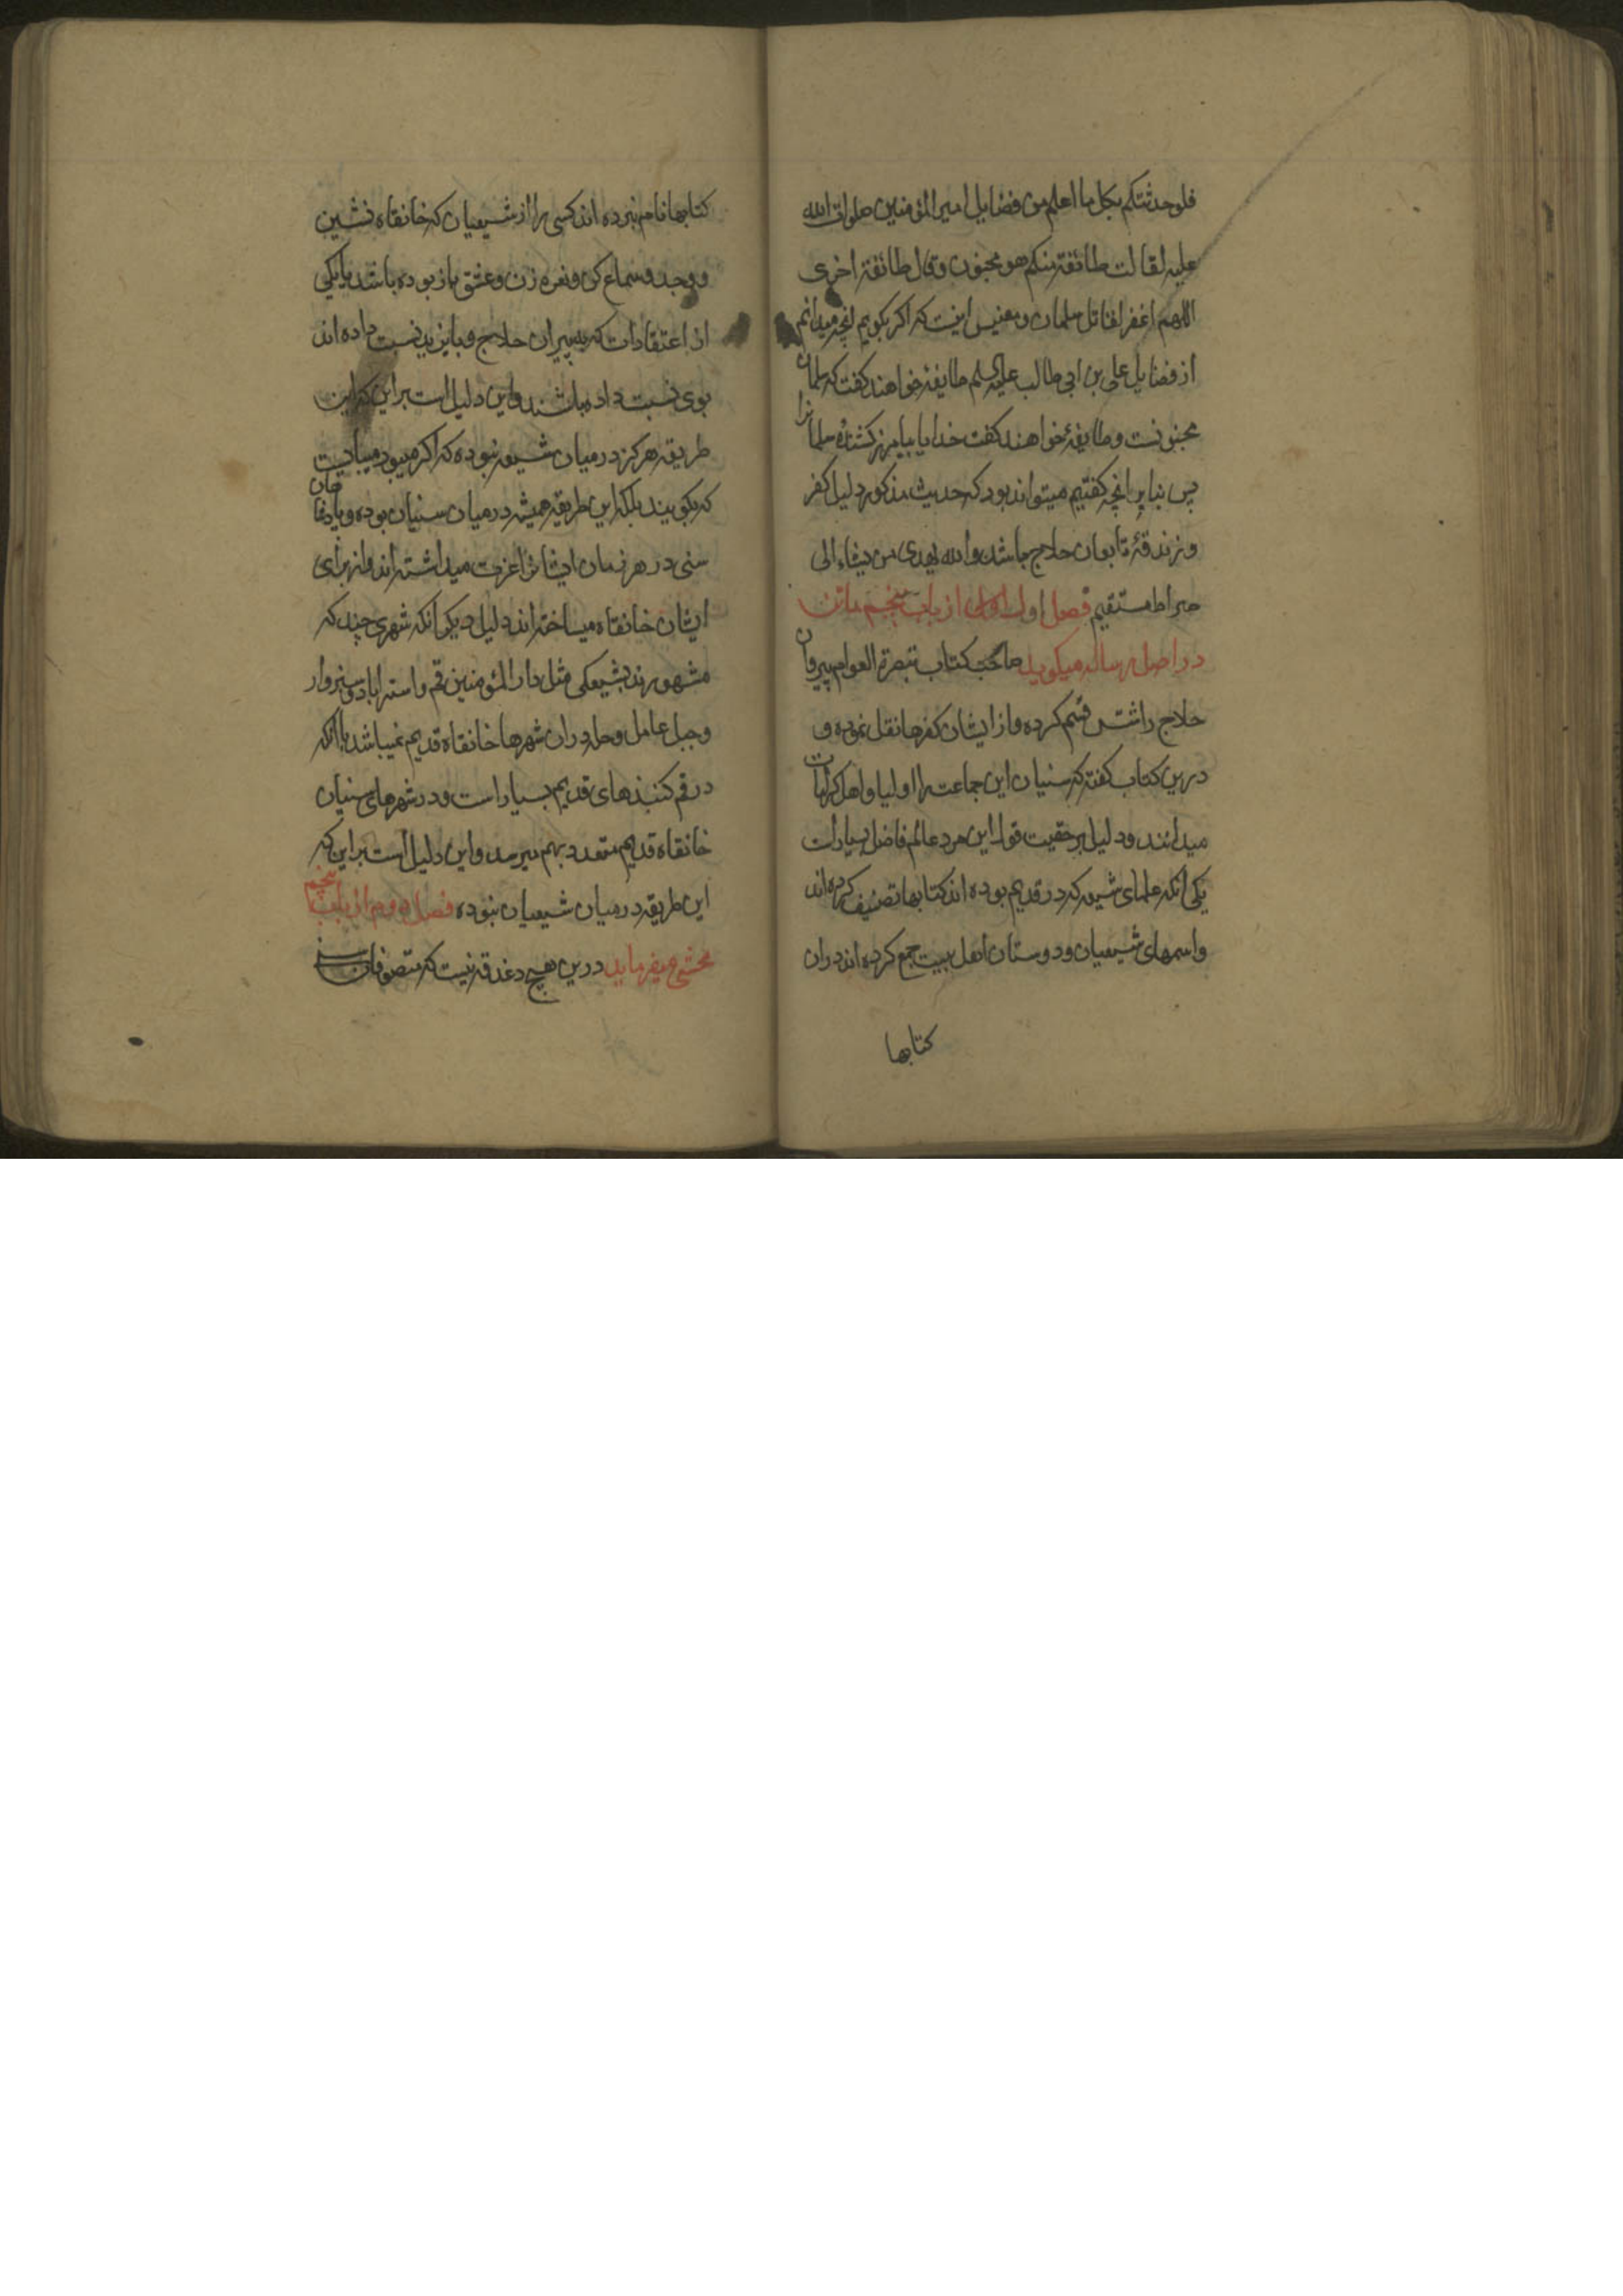 فلو حدثتکم بکل ما اعلم من فضایل امیر المؤمنین صلوات الله
علیه لقالت طائفة منکم هو مجنون وقال طائفة اخری
اللهم اغفر لقاتل سلمان ومعنیش اینست که اکر بکویم انچه میدانم
از فضایل علی بن ابی طالب علیه السلم طایفۀ خواهند کفت که سلمان
مجنونست و طایفۀ خواهند کفت خدایا بیامرز کشندۀ سلمانرا
پس بنابر انچه کفتیم میتواند بود که حدیث مذکور دلیل کفر
و زندقۀ تابعان حلاج باشد والله یهدی من یشاء الی
صراط مستقیم فصل اول از باب پنجم ماتن
در اصل رساله میکوید صاحب کتاب تبصرة العوام پیروان
حلاج را شش قسم کرده و از ایشان کفرها نقل نموده و
درین کتاب کفته که سنیان این جماعت را اولیا و اهل کرامات
میدانند و دلیل بر حقیت قول این مرد عالم فاضل بسیارست
یکی انکه علمای شیعه که در قدیم بوده اند کتابها تصنیف کرده اند
واسمهای شیعیان و دوستان اهل بیت جمع کرده اند دران
کتابها
کتابها نام نبرده اند کسی را از شیعیان که خانقاه نشین
و وجد و سماع کن و نعره زن و عشق باز بوده باشد یا یکی
از اعتقادات که به پیران حلاج و بایزید نسبت داده اند
بوی نسبت داده باشند و این دلیل است بر این که این
طریقه هرکز در میان شیعه نبوده که اکر میبود میبایست
که بکویند بلکه این طریقه همیشه در میان سنیان بوده و پادشاهان
سنی در هر زمان ایشانرا عزت میداشته اند و از برای
ایشان خانقاه میساخته اند دلیل دیکر انکه شهری چند که
مشهورند بشیعکی مثل دار المؤمنین قم و استراباد و سبزوار
و جبل عامل و حله دران شهرها خانقاه قدیم نمیباشد با انکه
در قم کنبذهای قدیم بسیار است و در شهرهای سنیان
خانقاه قدیم متعدد بهم میرسد و این دلیل است بر این که
این طریقه در میان شیعیان نبوده فصل دوم از باب پنجم
محشی میفرماید درین هیچ دغدقه نیست که متصوفان سنی